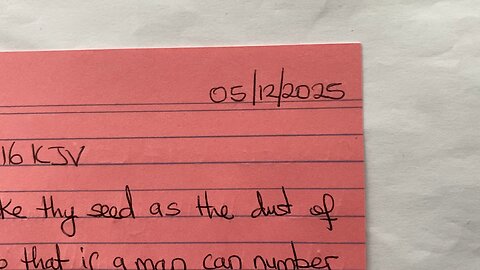 05/12/2025
16 KJV
ke thy seed as the dust of
that if a man can number